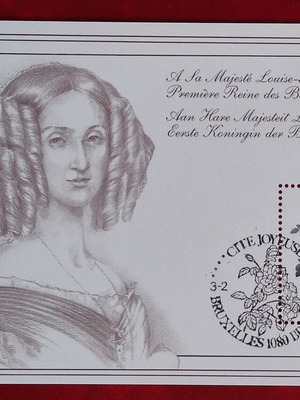 A Sa Majesté Louise-
Première Reine des B
Aan Hare Majesteit L
Eerste Koningin der B
CITE JOYEUSE
3-2
BRUXELLES 1080 B